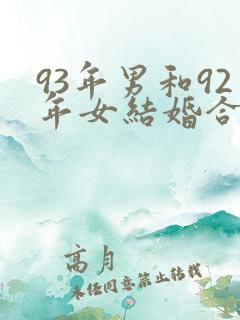 93年男和92
年女結婚合
高月
未经同意禁止转载